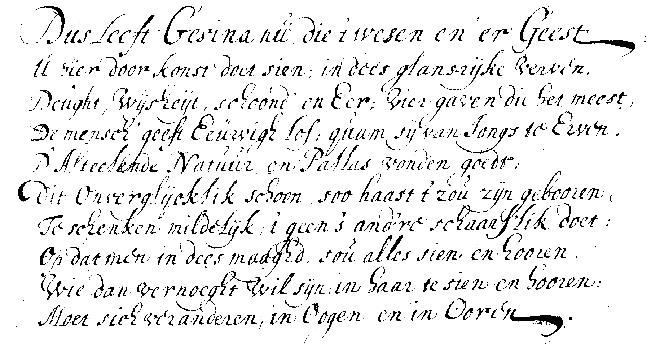 Dus leeft Gesina nu die 't wesen en 'er Geest
U hier door konst doet sien, in dees glansrijke verven.
Deught, Wijsheijt, schoonê en Eer, vier gaven die het meest,
De mensch geeft Eeuwigh lof, quam sij van Jongs te Erven.
D'Alteelende Natuur, en Pallas vonden goedt,
Dit Onverglijcklik schoon, soo haast t'zou zijn gebooren,
Te schenken mildelijk, 't geen s' and're schaarslik doet:
Op dat men in dees maaghd, sou alles sien en hooren.
Wie dan vernoeght wil sijn, in haar te sien en hooren:
Moet sich veranderen, in Oogen en in Ooren.